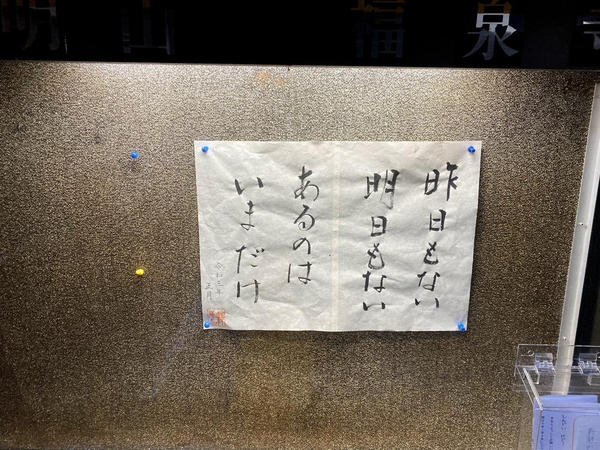 明山 福泉寺
昨日もない
明日もない
あるのは
いまだけ
令和三年
正月